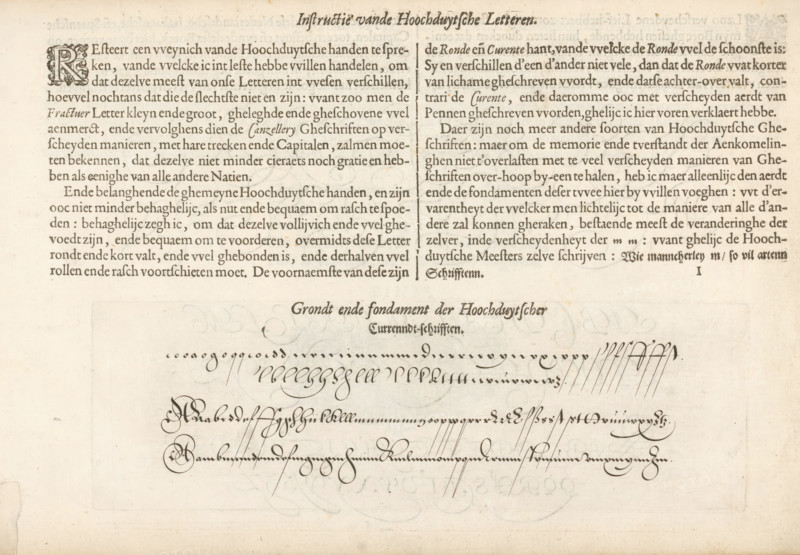 Instructie vande Hoochduytsche Letteren.
REsteert een vveynich vande Hoochduytsche handen te spre-
ken, vande vvelcke ic int leste hebbe vvillen handelen, om
dat dezelve meest van onse Letteren int vvesen verschillen,
hoevvel nochtans dat die de slechtste niet en zijn: vvant zoo men de
Fractuer Letter kleyn ende groot, gheleghde ende gheschovene vvel
aenmerct, ende vervolghens dien de Canzellery Gheschriften op ver-
scheyden manieren, met hare trecken ende Capitalen, zalmen moe-
ten bekennen, dat dezelve niet minder cieraets noch gratie en heb-
ben als eenighe van alle andere Natien.
Ende belanghende de ghemeyne Hoochduytsche handen, en zijn
ooc niet minder behaghelijc, als nut ende bequaem om rasch te spoe-
den: behaghelijc zegh ic, om dat dezelve vollijvich ende vvel ghe-
voedt zijn, ende bequaem om te voorderen, overmidts dese Letter
rondt ende kort valt, ende vvel ghebonden is, ende derhalven vvel
rollen ende rasch voortschieten moet. De voornaemste van dese zijn
de Ronde en̄ Curente hant, vande vvelcke de Ronde vvel de schoonste is:
Sy en verschillen d'een d'ander niet vele, dan dat de Ronde vvat korter
van lichame gheschreven vvordt, ende datse achter-over valt, con-
trari de Curente, ende daeromme ooc met verscheyden aerdt van
Pennen gheschreven vvorden, ghelijc ic hier voren verklaert hebbe.
Daer zijn noch meer andere soorten van Hoochduytsche Ghe-
schriften: maer om de memorie ende tverstandt der Aenkomelin-
ghen niet t'overlasten met te veel verscheyden manieren van Ghe-
schriften over-hoop by-een te halen, heb ic maer alleenlijc den aerdt
ende de fondamenten deser tvvee hier by vvillen voeghen: vvt d'er-
varentheyt der vvelcker men lichtelijc tot de maniere van alle d'an-
dere zal konnen gheraken, bestaende meest de veranderinghe der
zelver, inde verscheydenheyt der m m: vvant ghelijc de Hooch-
duytsche Meesters zelve schrijven: Wie manncherley m/ so vil artenn
Schrifftenn. I
Grondt ende fondament der Hoochduytscher
Currenndt-schrifften.